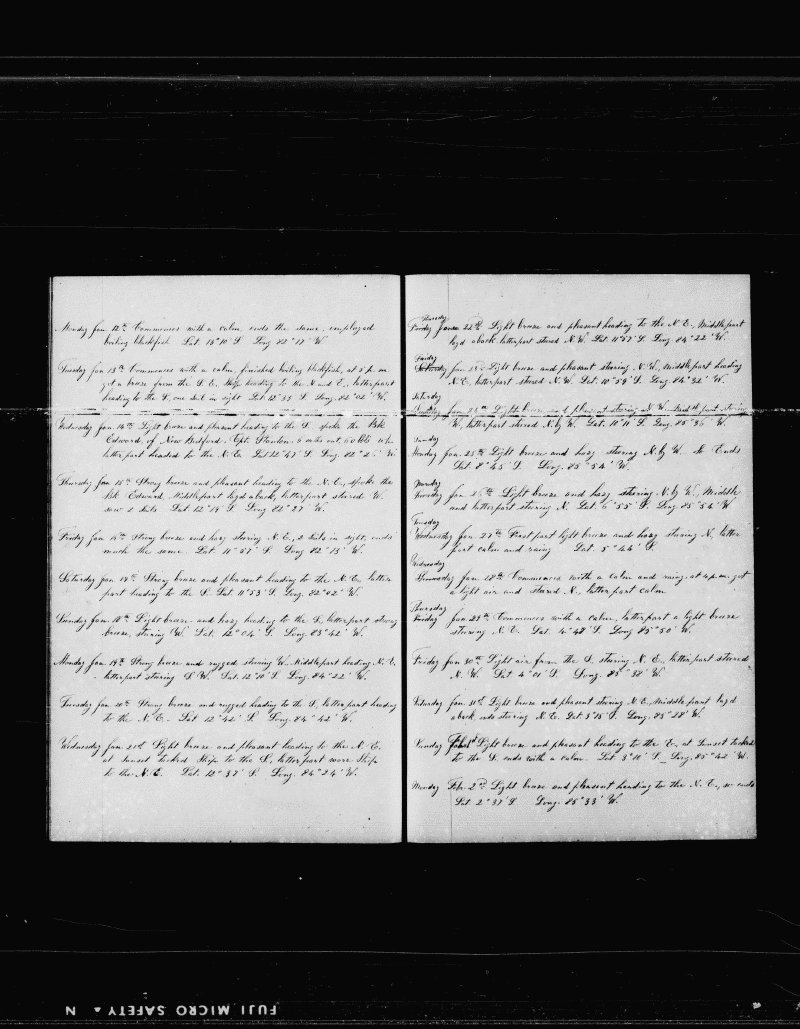 Monday Jan 12th Commences with a calm, ends the same, employed
boiling blackfish Lat. 13° 10' S Long 82° 17' W.
Tuesday Jan 13th Commences with a calm, finished boiling blackfish, at 5 p.m.
got a breeze from the S.E. Ship heading to the N and E, latter part
heading to the S, one sail in sight Lat 12° 53' S. Long. 82° 02' W.
Wednesday Jan 14th Light breeze and pleasant heading to the S. spoke the Bk
Edward, of New Bedford, Cpt. 6 mths out, 60 bbls
latter part headed to the N.E. Lat 12° 47' S. Long. 82° W.
Thursday Jan 15th Strong breeze and pleasant heading to the N.E., spoke the
Bk Edward, Middle part layd aback, latter part steered W.
saw 2 sails Lat 12° 14' S Long 82° 27' W.
Friday Jan 16th Strong breeze and hazy steering N.E, 2 sails in sight, ends
much the same Lat. 11° 57' S. Long 82° 15' W.
Saturday Jan 17th Strong breeze and pleasant heading to the N.E, latter
part heading to the S. Lat 11° 53' S. Long. 82° 02' W.
Sunday Jan 18th Light breeze and hazy heading to the S, latter part strong
breeze, steering W. Lat. 12° 04' S. Long 83° 42' W.
Monday Jan. 19th Strong breeze and rugged steering W. Middle part heading N.E.
latter part steering S.W. Lat. 12° 10' S. Long. 84° 22' W.
Tuesday Jan 20th Strong breeze and rugged heading to the S, latter part heading
to the N.E. Lat 12° 42' S. Long. 84° 42' W.
Wednesday Jan 21st Light breeze and pleasant heading to the N.E.
at sunset tacked Ship to the S, latter part wore Ship
to the N.E. Lat. 12° 37' S. Long. 84° 24' W.
Thursday
Friday Jan 22nd Light breeze and pleasant heading to the N.E., Middle part
layd aback latter part steered N.W. Lat. 11° 57' S. Long 84° 22' W.
Friday
Saturday Jan Light breeze and pleasant steering N.W., Middle part heading
N.E. latter part steered N.W. Lat. 10° 59' S. Long. 84° 32' W.
Saturday
Sunday Jan 24th Light breeze and pleasant steering N.W. Middle part steering
W, latter part steered N. by W. Lat. 10° 11' S. Long. 85° 36' W.
Sunday
Monday Jan. 25th Light breeze and hazy steering N. by W. So Ends
Lat. 8° 45' S. Long. 85° 54' W.
Monday
Tuesday Jan 26th Light breeze and hazy steering N. by W., Middle
and latter part steering N. Lat. 6° 55' S. Long 85° 54' W.
Tuesday
Wednesday Jan 27th First part light breeze and hazy steering N, latter
part calm and rainy Lat. 5° 44' S.
Wednesday
Thursday Jan 28th Commences with a calm and rainy, at 4 p.m. got
a light air and steered N., latter part calm
Thursday
Friday Jan 29th Commences with a calm, latter part a light breeze
steering N.E. Lat. 4° 48' S. Long 85° 50' W.
Friday Jan 30th Light air from the S. steering N.E., latter part steered
N.W. Lat. 4° 01' S. Long. 85° 38' W.
Saturday Jan 31st Light breeze and pleasant steering N.E, Middle part layd
aback ends steering N.E. Lat 3° 15' S. Long. 85° 28' W.
Sunday Feb 1st Light breeze and pleasant heading to the E, at Sunset tacked
to the S. ends with a calm Lat 3° 10' S. Long. 85° 42' W.
Monday Feb. 2nd Light breeze and pleasant heading to the N.E., so ends
Lat. 2° 37' S Long. 85° 33' W.
FUJI MICRO SAFETY ▲ N